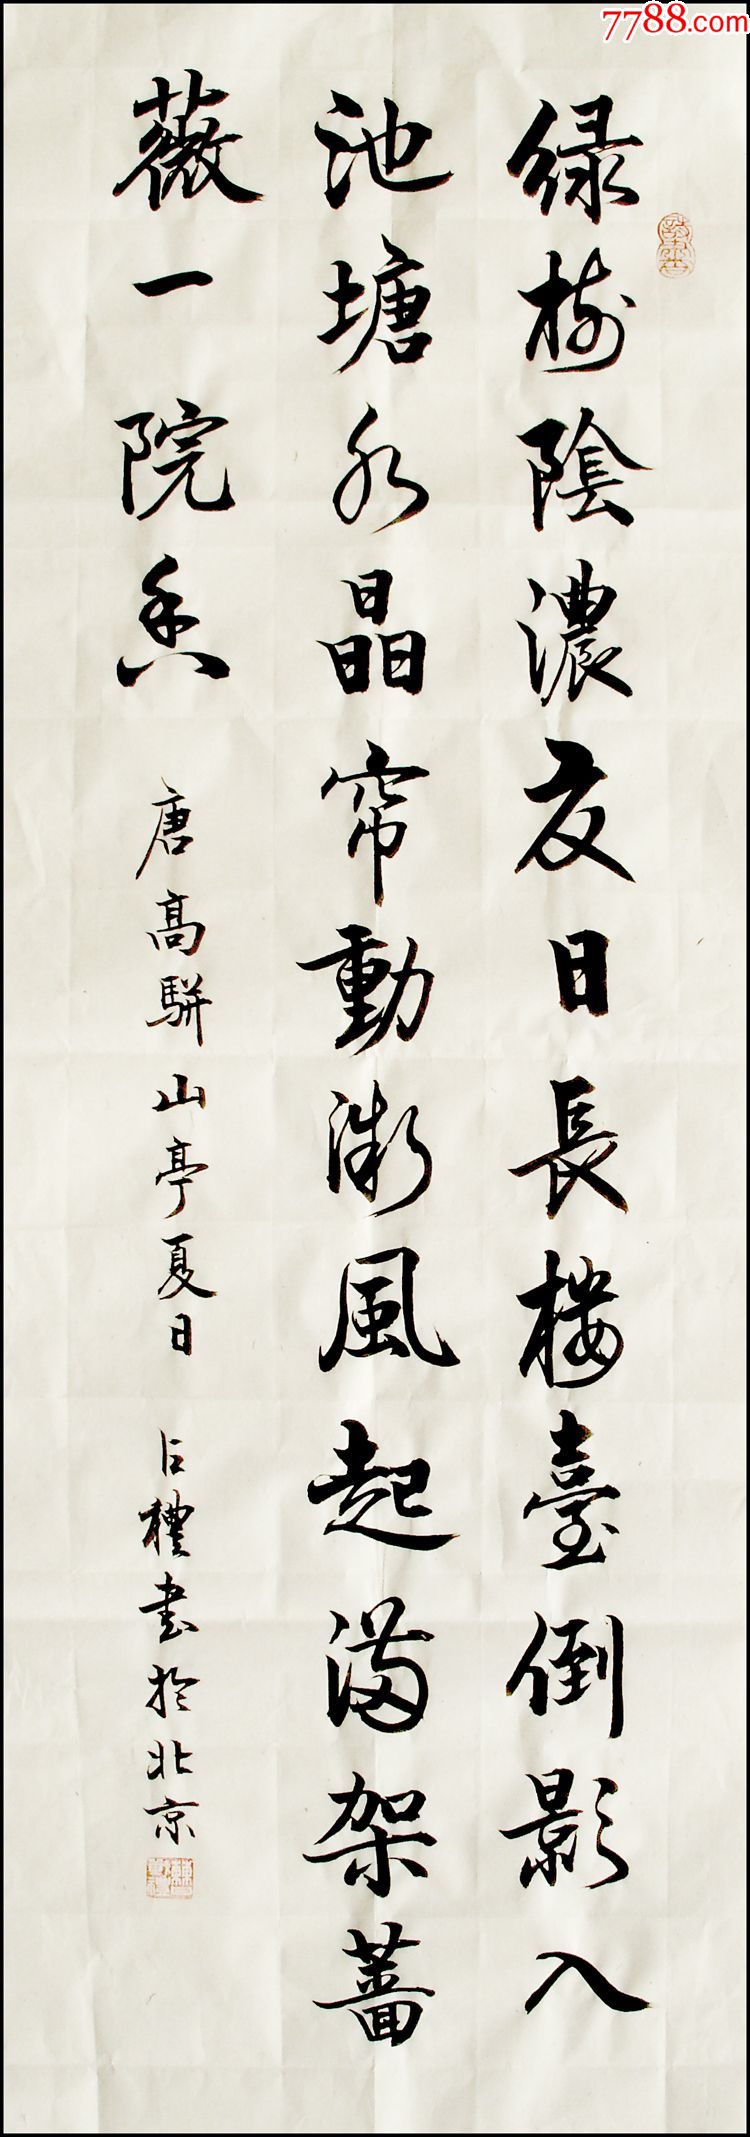 7788.com
绿树陰濃夏日長楼臺倒影入
池塘水晶帘動微風起满架蔷
薇一院香
唐高駢山亭夏日 占禮书於北京